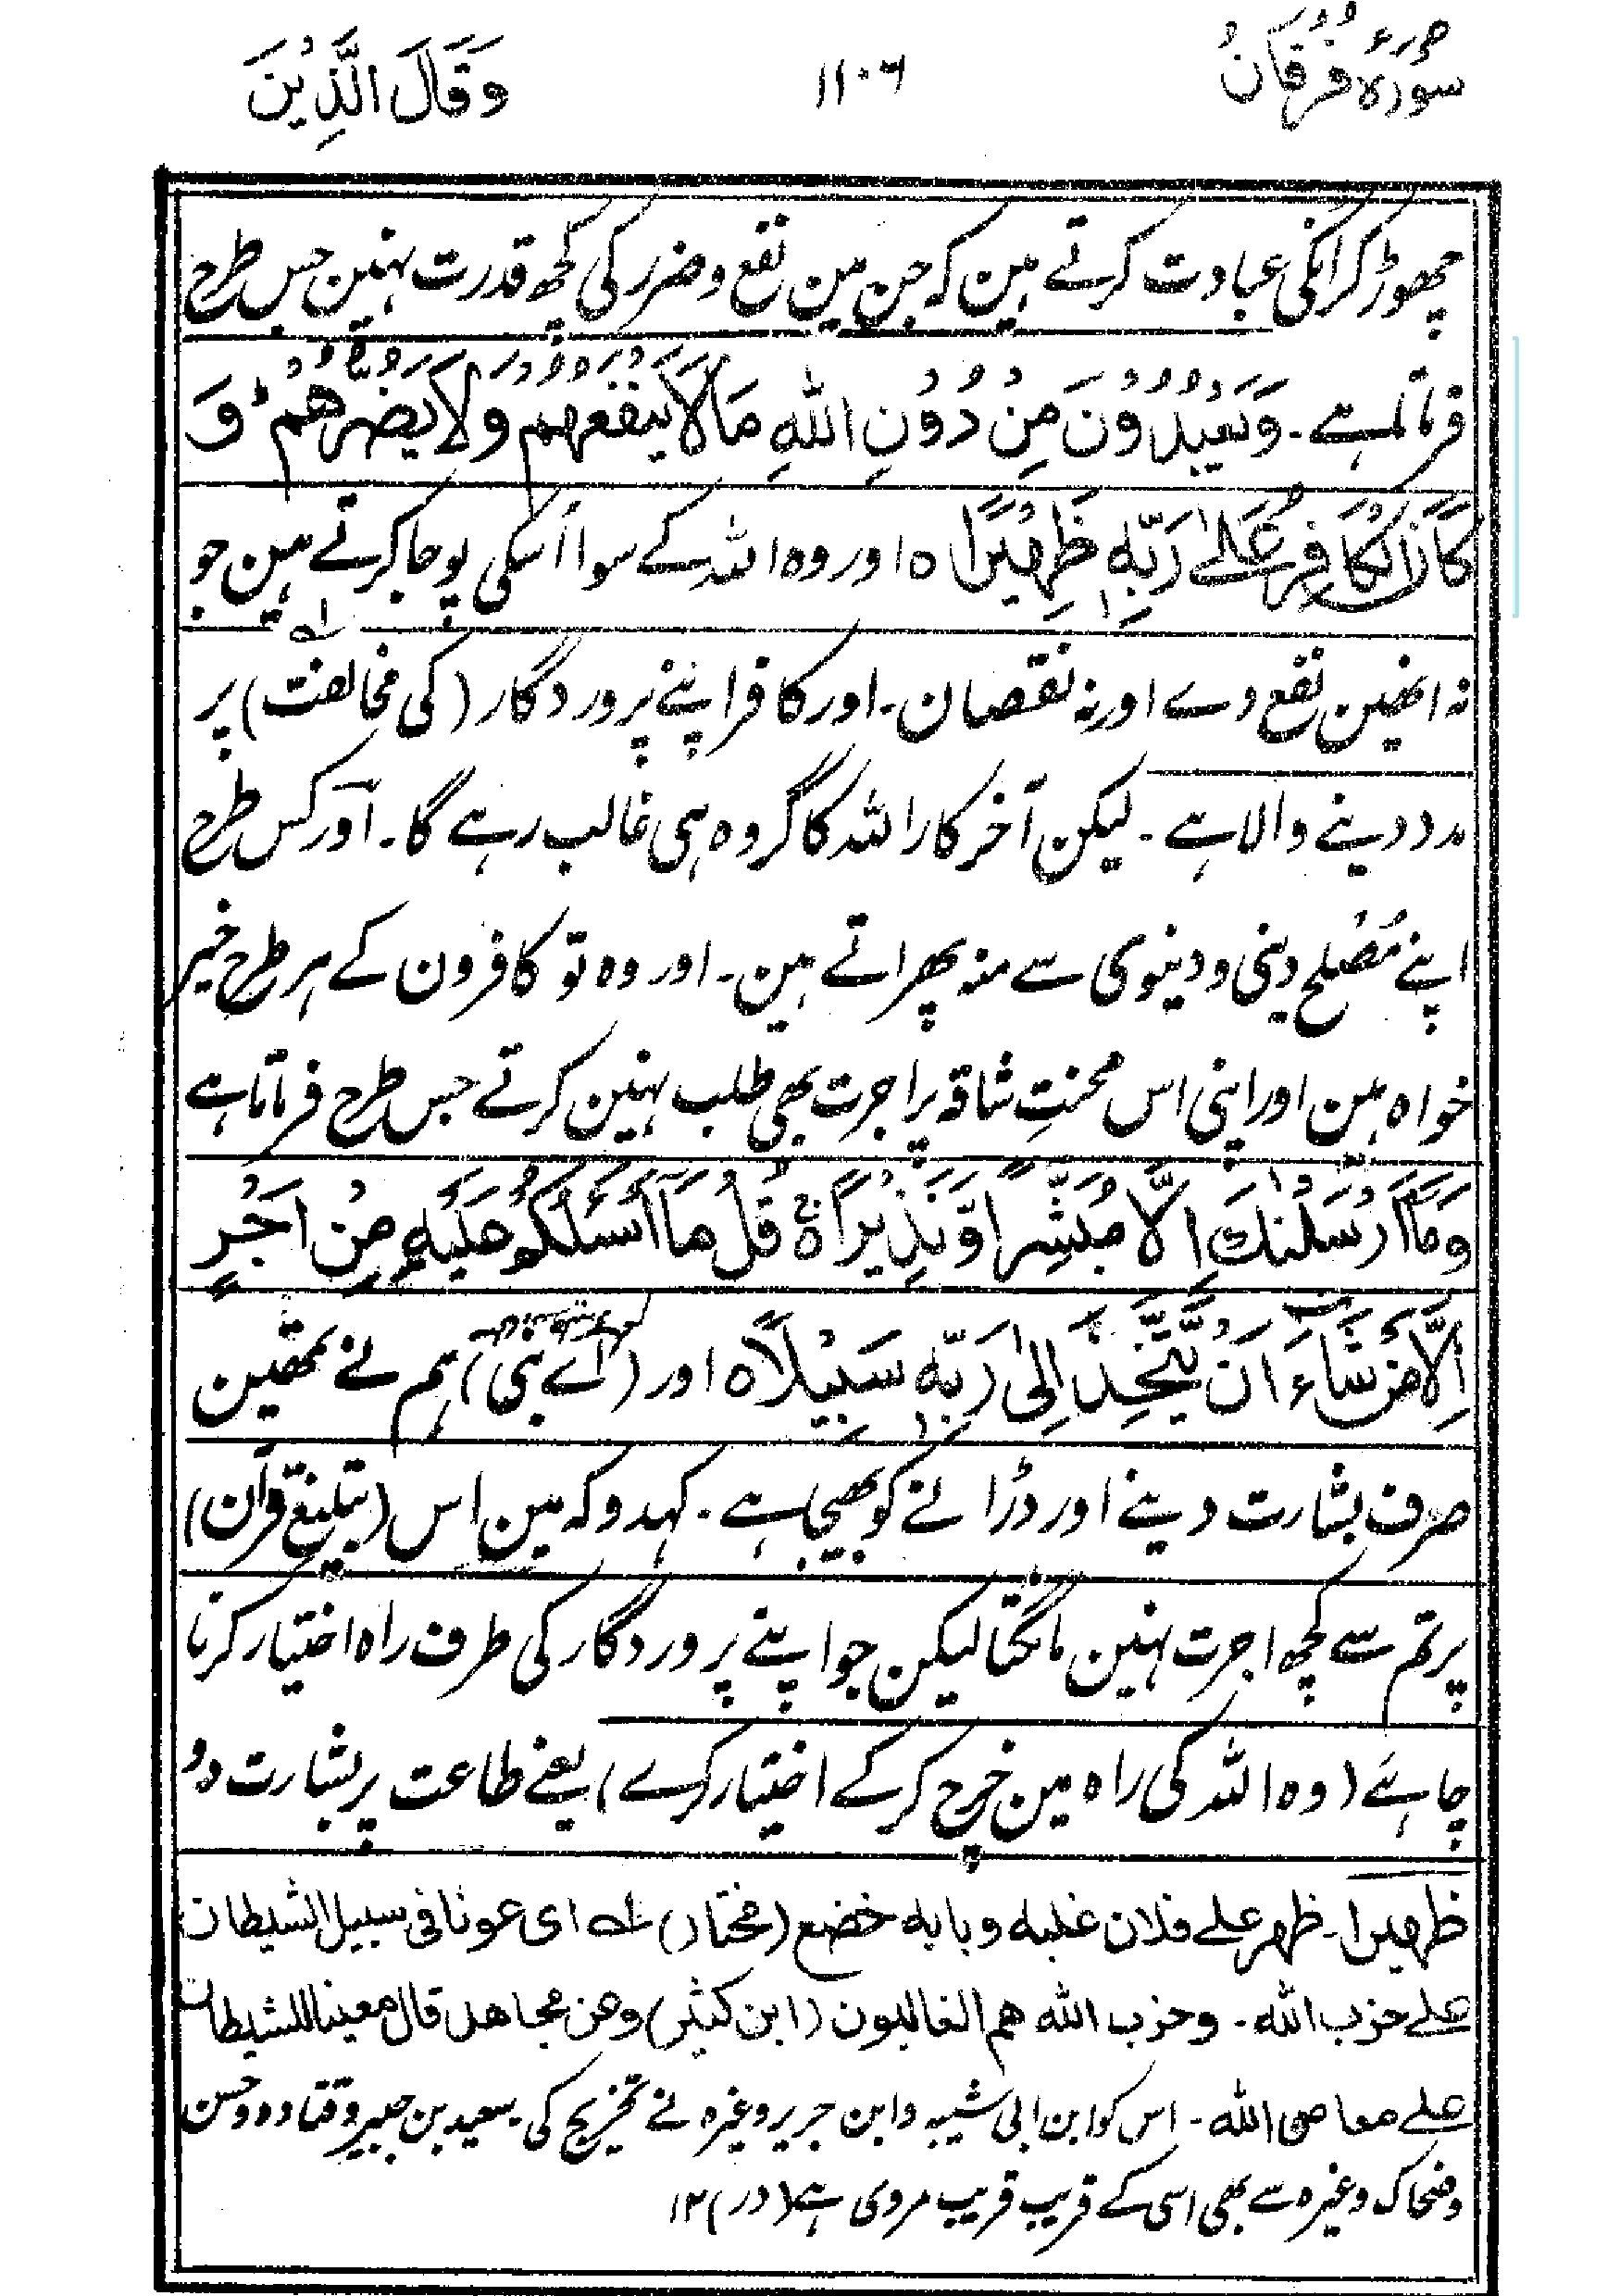 سورۂ فُرقَان ۱۱۰۶ وَقَالَ الَّذِیْنَ
چھوڑکر انکی عبادت کرتے ہین کہ جن مین نفع وضرر کی کچھ قدرت نہین جس طرح
فرماتا ہے۔ وَیَعْبُدُوْنَ مِنْ دُوْنِ اللہِ مَا لَا یَنْفَعُهُمْ وَلَا یَضُرُّهُمْ ؕ وَ
كَانَ الْكَافِرُ عَلٰى رَبِّهٖ ظَهِیْرًا ہ اور وہ اللہ کے سوا اُسکی پوجا کرتے ہین جو
نہ انھین نفع دے اور نہ نقصان۔ اور کافر اپنے پروردگار (کی مخالفت) پر
مدد دینے والا ہے۔ لیکن آخرکار اللہ کا گروہ ہی غالب رہے گا۔ اور کس طرح
اپنے مُصْلِح دینی و دینوی سے منہ پھراتے ہین۔ اور وہ تو کافرون کے ہر طرح خیر
خواہ ہین اور اپنی اس محنتِ شاقہ پر اجرت بھی طلب نہین کرتے جس طرح فرماتا ہے
وَمَآ اَرْسَلْنٰكَ اِلَّا مُبَشِّرًا وَّنَذِیْرًا ہ قُلْ مَآ اَسْـَٔلُكُمْ عَلَیْهِ مِنْ اَجْرٍ
اِلَّا مَنْ شَآءَ اَنْ یَّتَّخِذَ اِلٰى رَبِّهٖ سَبِیْلًا ہ اور (اے نبی) ہم نے تمھین
صرف بشارت دینے اور ڈرانے کو بھیجا ہے۔ کہدو کہ مین اس (تبلیغ قرآن)
پر تم سے کچھ اجرت نہین مانگتا لیکن جو اپنے پروردگار کی طرف راہ اختیار کرنا
چاہئے (وہ اللہ کی راہ مین خرچ کرکے اختیار کرے) یعنے طاعت پر بشارت دو
ظهیرا۔ ظهر علے فلان غلبه وبابه خضع (مختار) لہ ای عونا فی سبیل الشیطان
علے حزب الله۔ وحزب الله هم الغالبون (ابن کثیر) وعن مجاهد قال معینا للشیطان
علے معاصی الله۔ اس کو ابن ابی شیبہ وابن جریر وغیرہ نے تخریج کی۔ سعید بن جبیر وقتادہ وحسن
وضحاک وغیرہ سے بھی اسی کے قریب قریب مروی ہے (در) ۱۲